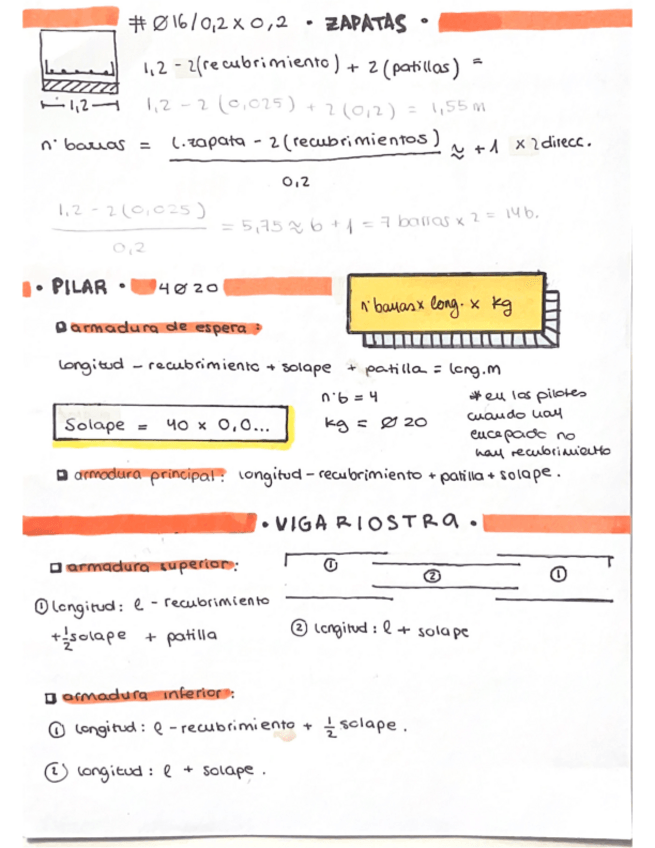 # Ø16/0,2 x 0,2 • ZAPATAS •
1,2 - 2(recubrimiento) + 2(patillas) =
1,2
1,2 - 2 (0,025) + 2(0,2) = 1,55m
n· barras = L.zapata - 2(recubrimientos) / 0,2 ≈ +1 x 2 direcc.
1,2 - 2(0,025) / 0,2 = 5,75 ≈ 6 + 1 = 7 barras x 2 = 14b.
• PILAR • 4Ø20
n·barras x long. x kg
armadura de espera:
longitud - recubrimiento + solape + patilla = long.m
n·b = 4
kg = Ø 20
Solape = 40 x 0,0...
* en los pilotes
cuando hay
encepado no
hay recubrimiento
armadura principal: longitud - recubrimiento + patilla + solape.
• VIGA RIOSTRA •
armadura superior:
① ② ①
① longitud: l - recubrimiento
+ 1/2 solape + patilla
② longitud: l + solape
armadura inferior:
① longitud: l - recubrimiento + 1/2 solape.
② longitud: l + solape.